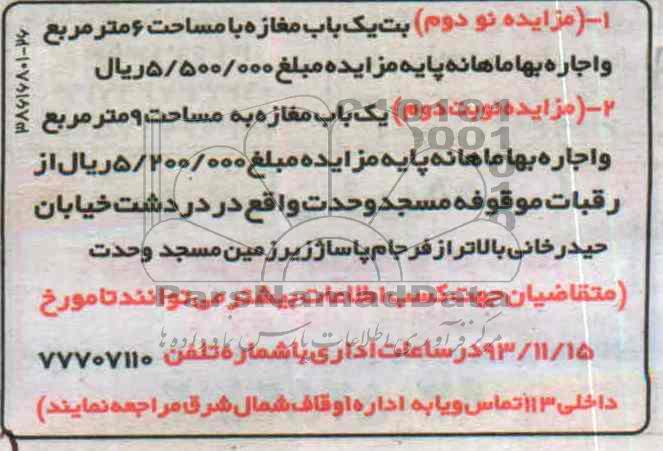 ۱-(مزایده نو دوم) بت یک باب مغازه با مساحت ۶ متر مربع
و اجاره بها ماهانه پایه مزایده مبلغ ۵/۵۰۰/۰۰۰ ریال
۲-(مزایده نوبت دوم) یک باب مغازه به مساحت ۹ متر مربع
و اجاره بها ماهانه پایه مزایده مبلغ ۵/۲۰۰/۰۰۰ ریال از
رقبات موقوفه مسجد وحدت واقع در دردشت خیابان
حیدرخانی بالاتر از فرجام پاساژ زیرزمین مسجد وحدت
(متقاضیان جهت کسب اطلاعات بیشتر می توانند تا مورخ
۹۳/۱۱/۱۵ در ساعات اداری با شماره تلفن ۷۷۷۰۷۱۱۰
داخلی ۱۱۳ تماس و یا به اداره اوقاف شمال شرق مراجعه نمایند)
ParsNamadData
مرکز فرآوری اطلاعات پارس نماد داده ها